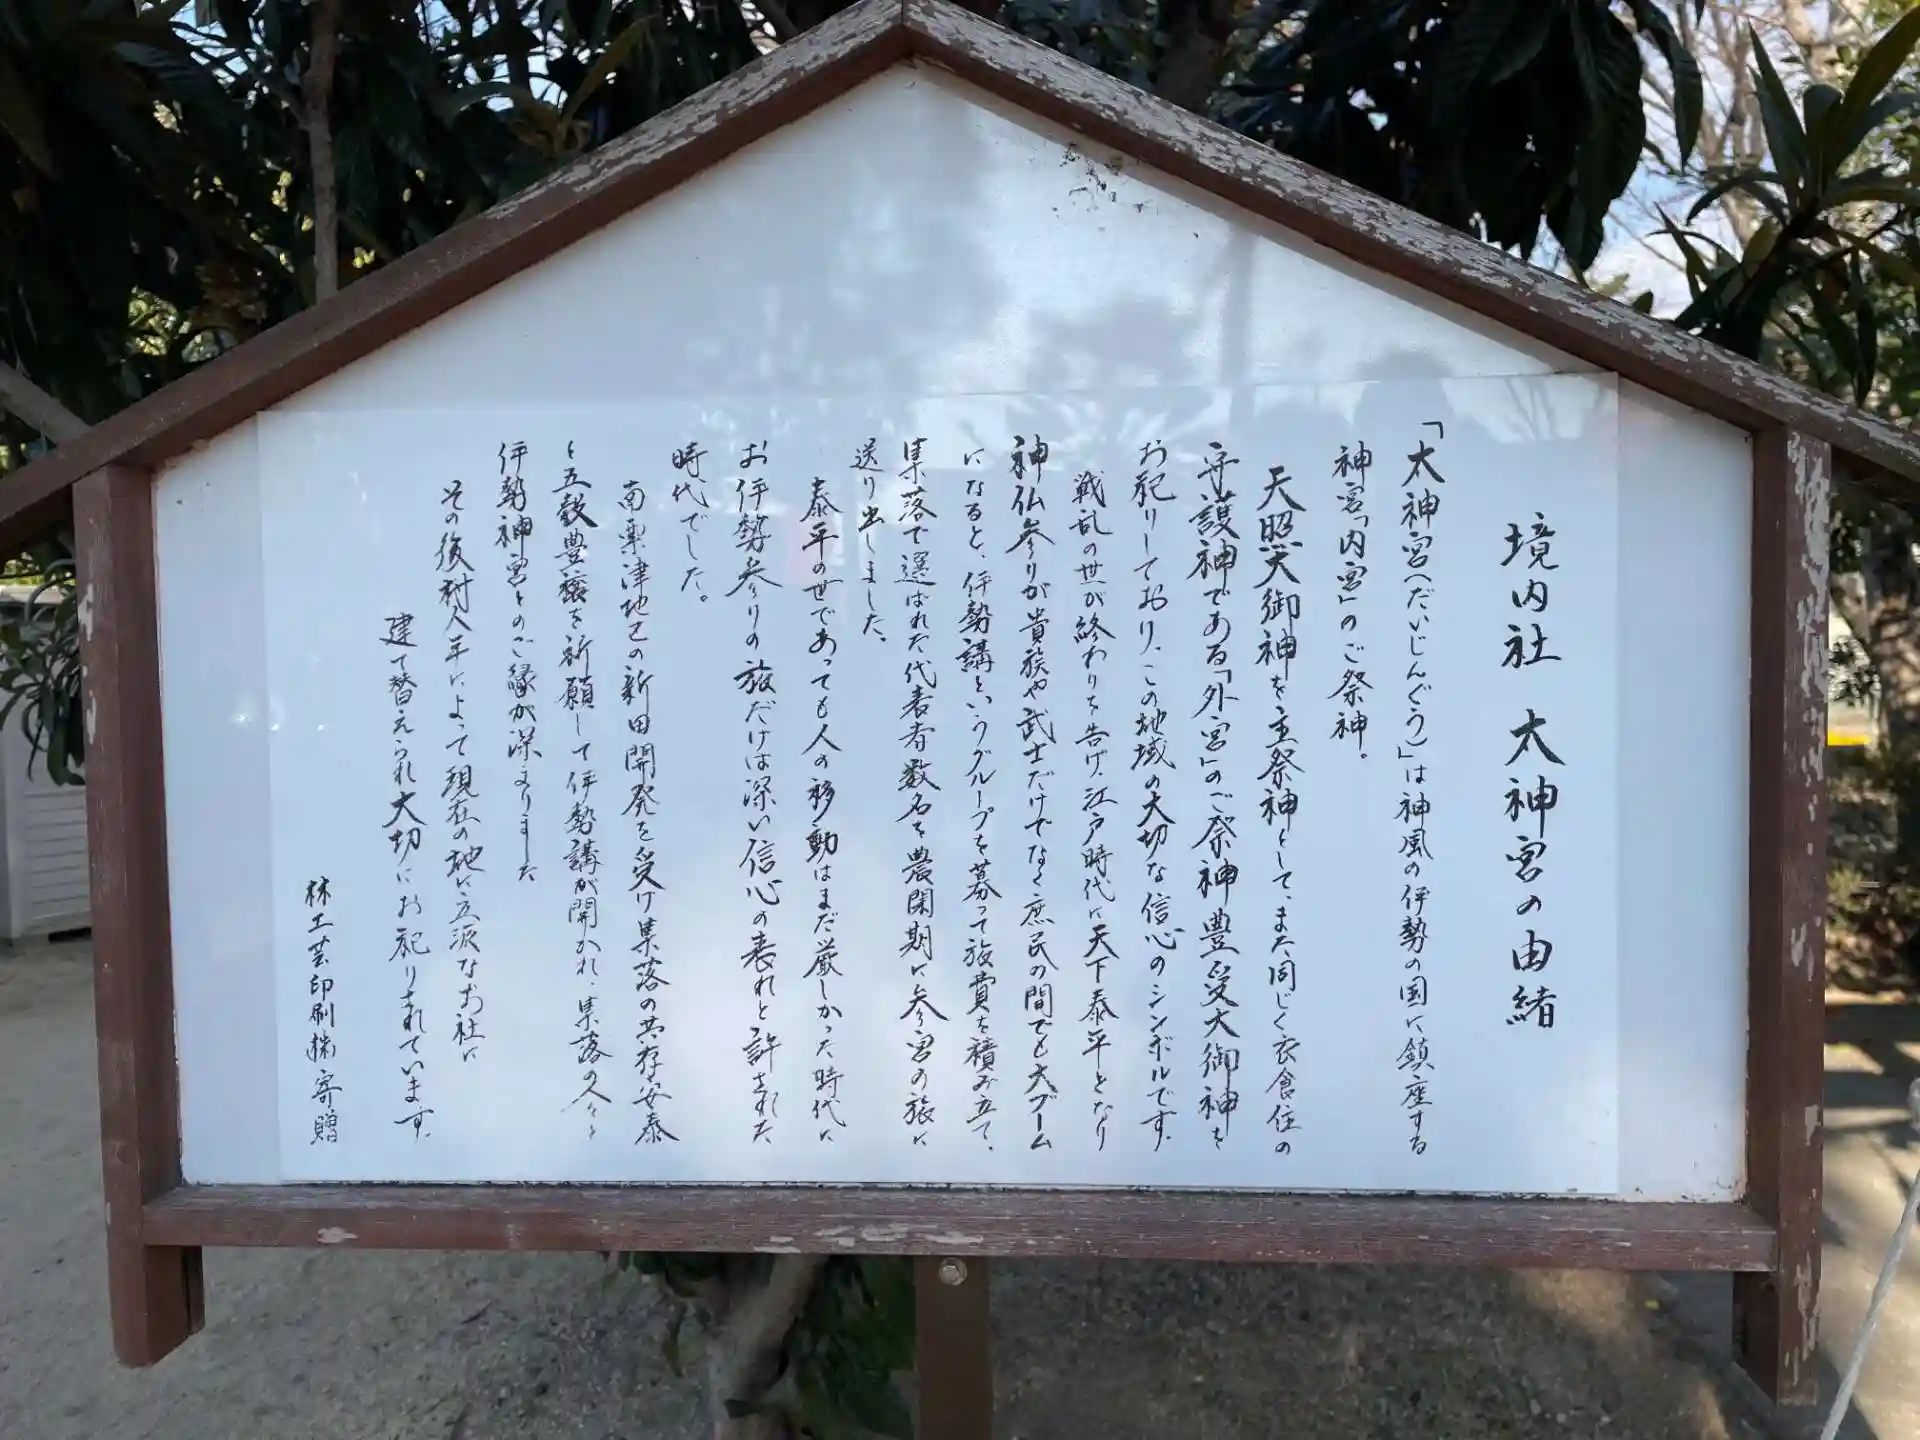 境内社 大神宮の由緒
「大神宮(だいじんぐう)」は神風の伊勢の国に鎮座する
神宮「内宮」のご祭神、
天照大御神を主祭神として、また同じく衣食住の
守護神である「外宮」のご祭神豊受大御神を
お祀りしており、この地域の大切な信心のシンボルです。
戦乱の世が終わりを告げ、江戸時代に天下泰平となり
神仏参りが貴族や武士だけでなく庶民の間でも大ブーム
になると、伊勢講というグループを募って旅費を積み立て、
集落で選ばれた代表者数名を農閑期に参宮の旅に
送り出しました。
泰平の世であっても人の移動はまだ厳しかった時代に
お伊勢参りの旅だけは深い信心の表れと許された
時代でした。
南栗津地区の新田開発を受け集落の共存・安泰
と五穀豊穣を祈願して伊勢講が開かれ、集落の人々と
伊勢神宮とのご縁が深まりました
その後村人年によって現在の地に立派なお社に
建て替えられ大切にお祀りされています。
林工芸印刷(株)寄贈